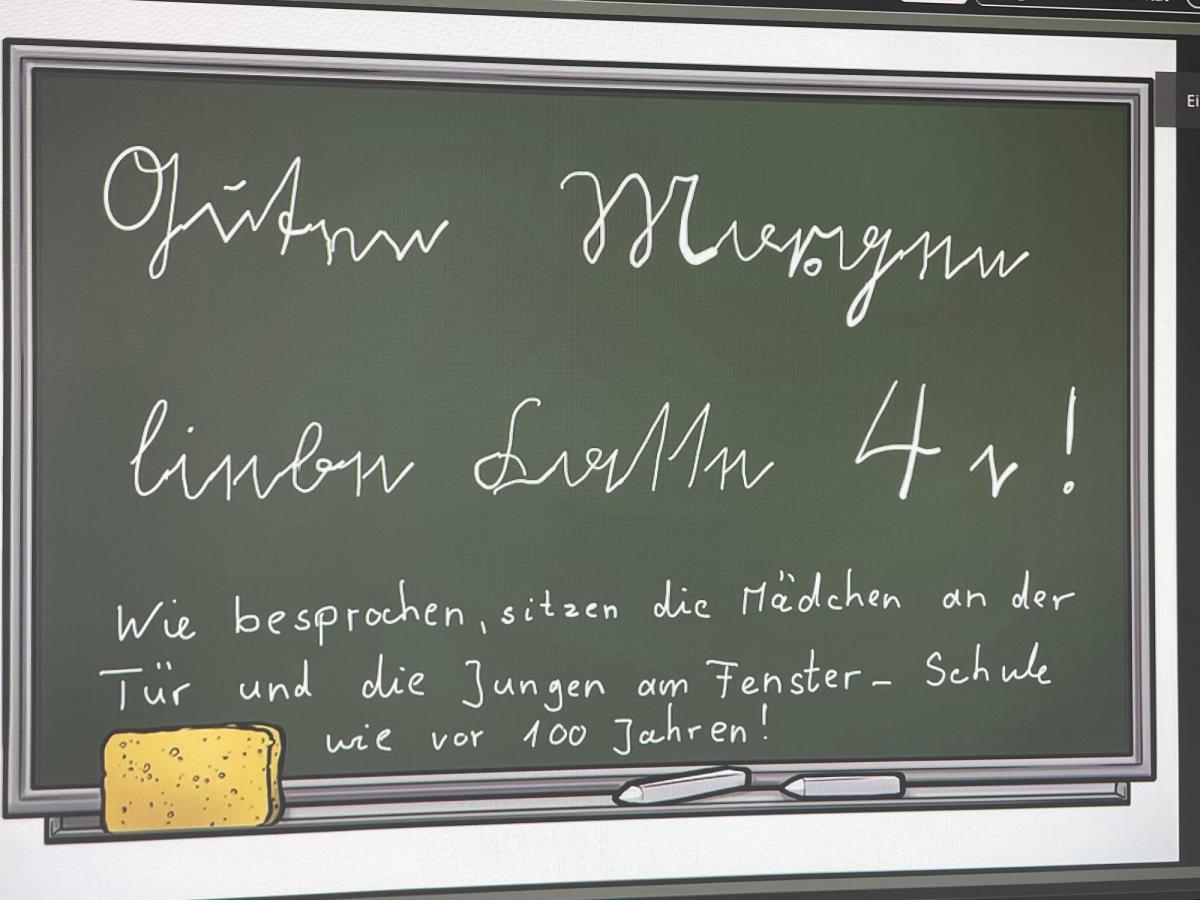 Guten Morgen
liebe Klasse 4 e!
Wie besprochen, sitzen die Mädchen an der
Tür und die Jungen am Fenster - Schule
wie vor 100 Jahren!